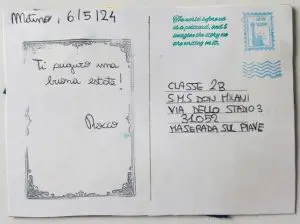 Måino, 6/5/24
Ti auguro una
buona estate!
Rocco
The world before us
is a postcard, and I
imagine the story we
are writing on it.
CLASSE 2B
S.M.S DON MILANI
VIA DELLO STADIO 3
31052
MASERADA SUL PIAVE